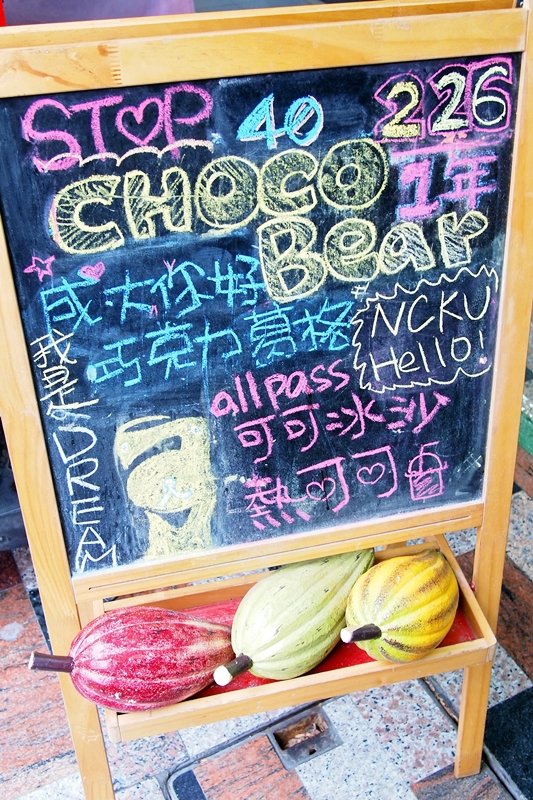 STOP 40 226
CHOCO 1年
Bear
成大你好
巧克力慕格
NCKU
Hello!
我是SDREAM
all pass
可可冰沙
熱可可